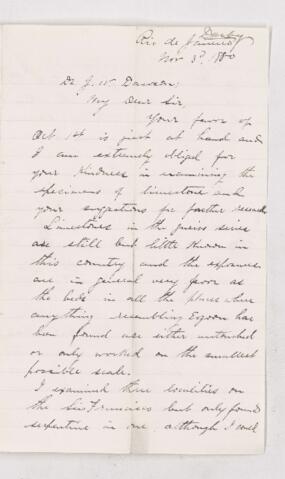 Derby
Rio de Janeiro
Nov 3d, 1880
Dr J. W. Dawson;
My Dear Sir,
Your favor of
Oct 1st is just at hand and
I am extremely obliged for
your kindness in examining the
specimens of limestone and
your suggestions for further research
Limestones in the gneiss series
are still but little known in
this country and the exposures
are in general very poor as
the beds in all the places where
anything resembling Eozoon has
been found are either untouched
or only worked on the smallest
possible scale.
I examined three localities on
the São Francisco but only found
serpentine in one although I was